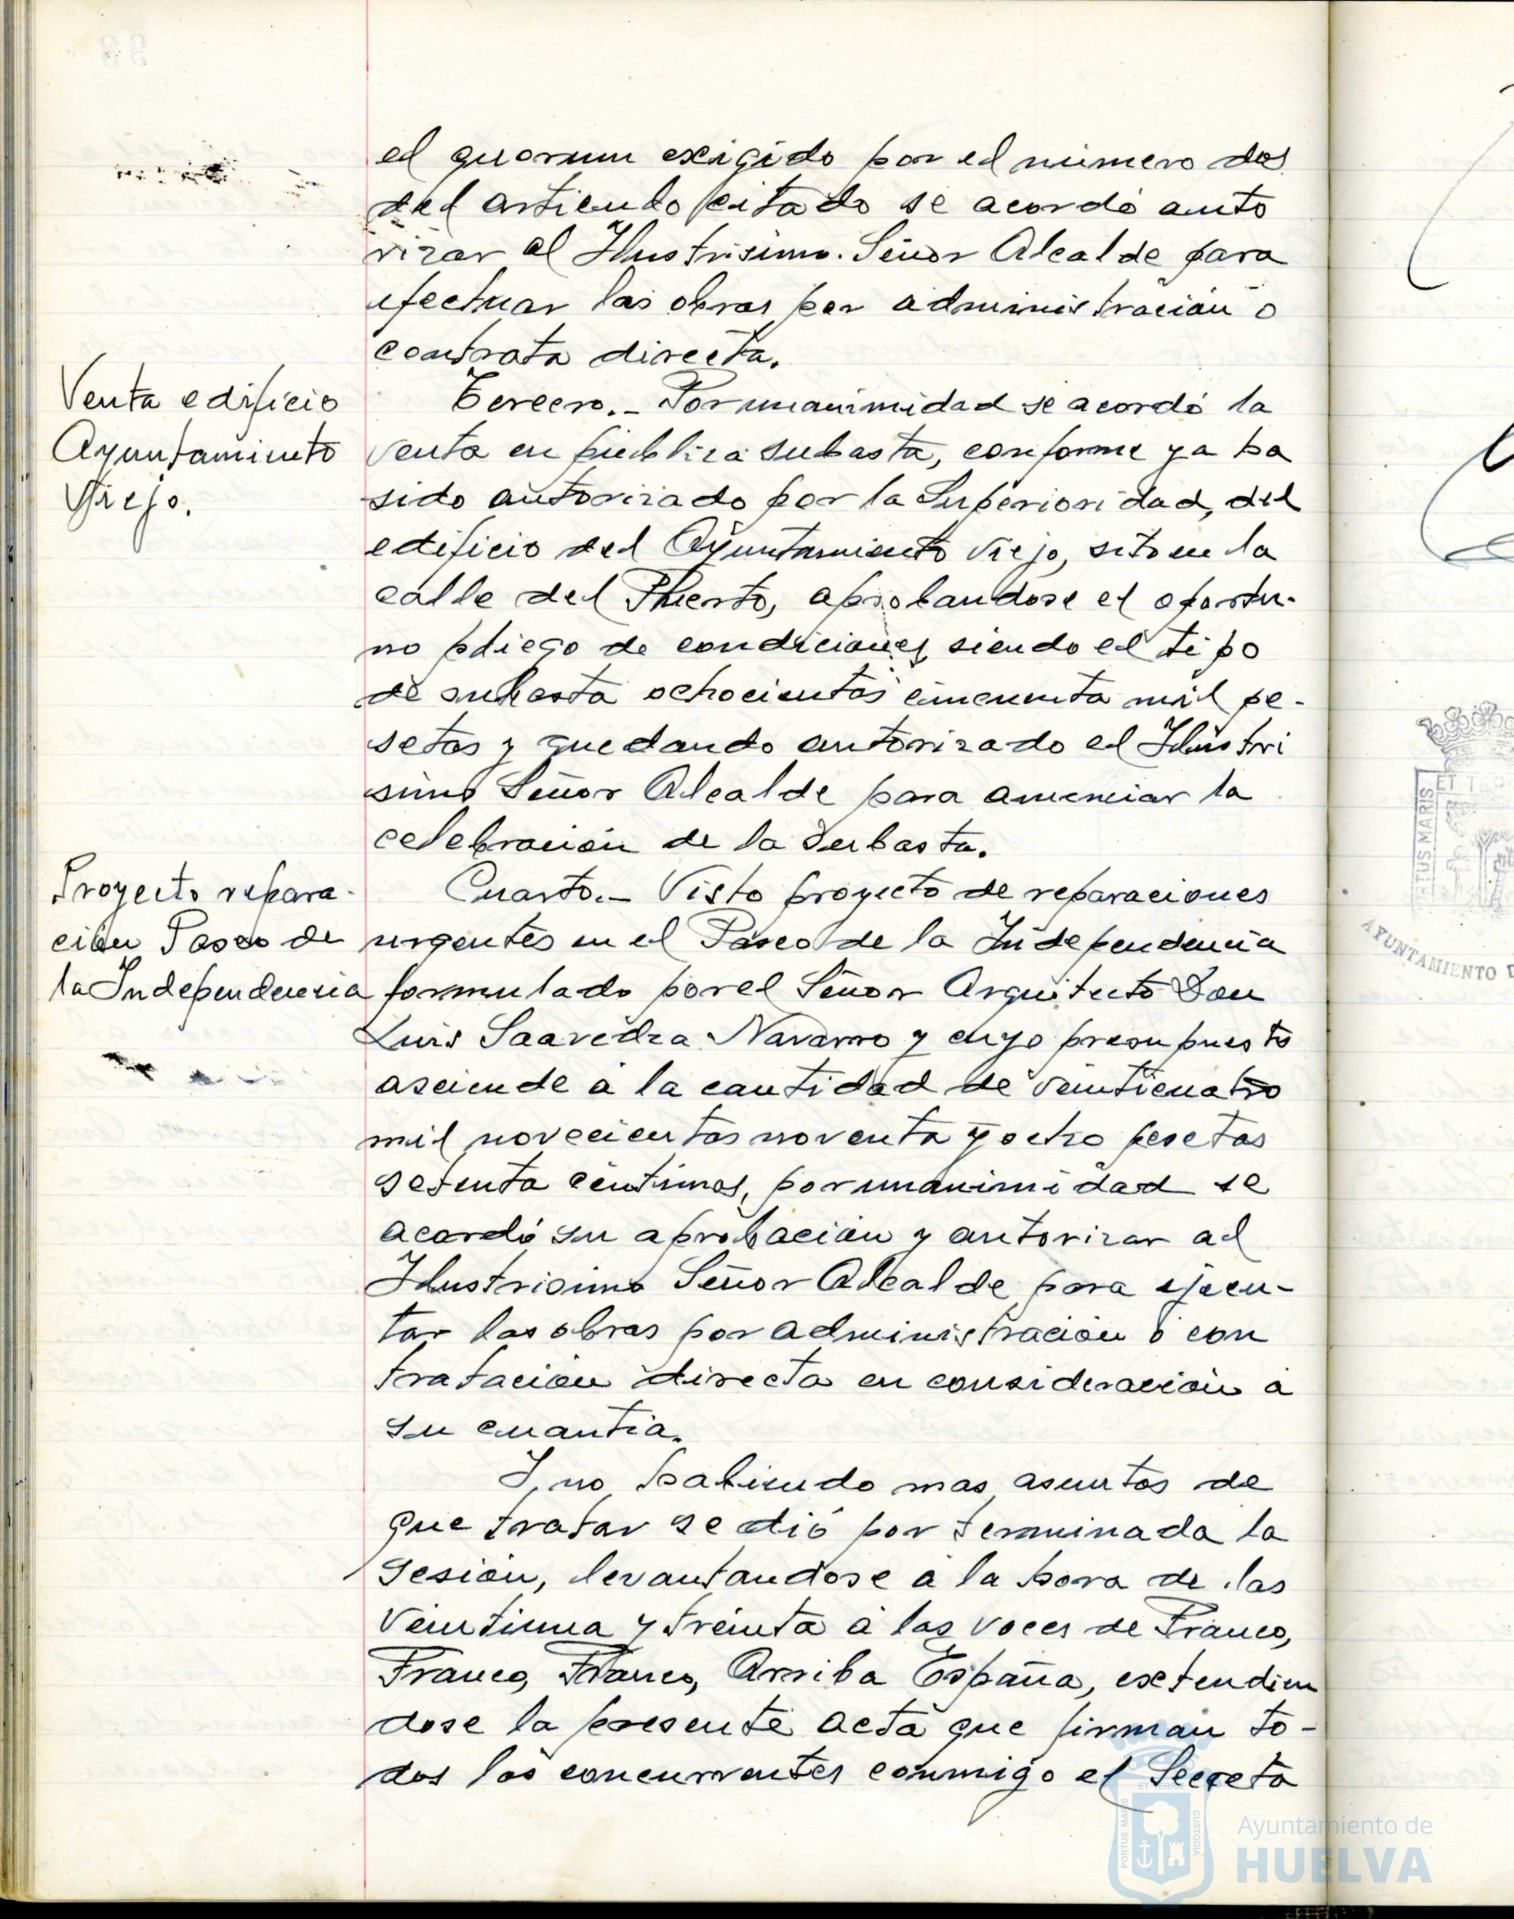 el quorum exigido por el número dos
del articulo citado se acordó auto
rizar al Ilustrisimo Señor Alcalde para
efectuar las obras por administración o
contrata directa.
Venta edificio
Ayuntamiento
Viejo.
Tercero.- Por unanimidad se acordó la
venta en pública subasta, conforme ya ha
sido autorizado por la Superioridad, del
edificio del Ayuntamiento Viejo, sito en la
calle del Puerto, aprobandose el oportu-
no pliego de condiciones, siendo el tipo
de subasta ochocientas cincuenta mil pe-
setas y quedando autorizado el Ilustri
simo Señor Alcalde para anunciar la
celebración de la Subasta.
Proyecto repara-
ción Paseo de
la Independencia
Cuarto.- Visto proyecto de reparaciones
urgentes en el Paseo de la Independencia
formulado por el Señor Arquitecto Don
Luis Saavedra Navarro y cuyo presupuesto
asciende a la cantidad de veinticuatro
mil novecientas noventa y ocho pesetas
setenta céntimos, por unanimidad se
acordó su aprobación y autorizar al
Ilustrisimo Señor Alcalde para ejecu-
tar las obras por administración ó con
tratación directa en consideración á
su cuantia.
Y no habiendo mas asuntos de
que tratar se dió por terminada la
sesión, levantandose a la hora de las
veintiuna y treinta a las voces de Franco,
Franco, Franco, Arriba España, extendien
dose la presente acta que firman to-
dos los concurrentes conmigo el Secreta
PORTUS MARIS
CUSTODIA
Ayuntamiento de
HUELVA
ET TERRAE
PORTUS MARIS
AYUNTAMIENTO D